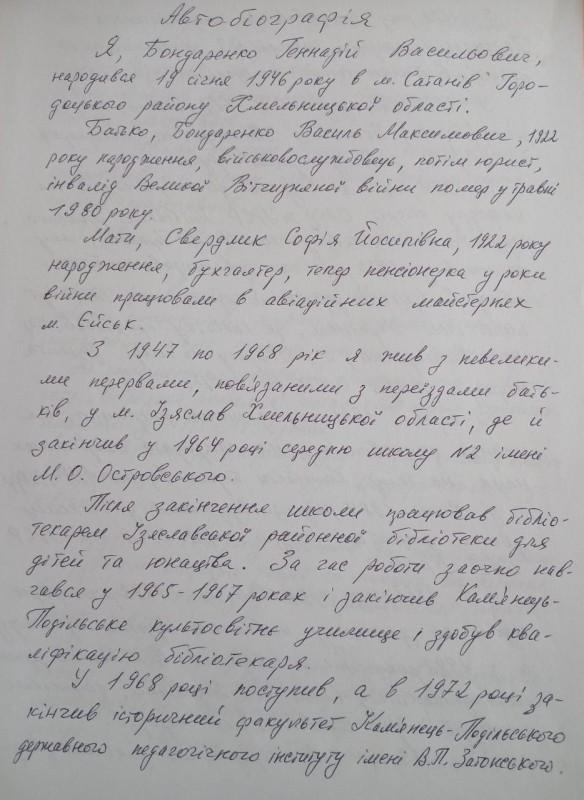 Автобіографія
Я, Бондаренко Геннадій Васильович,
народився 19 січня 1946 року в м. Сатанів Горо-
доцького району Хмельницької області.
Батько, Бондаренко Василь Максимович, 1922
року народження, військовослужбовець, потім юрист,
інвалід Великої Вітчизняної війни помер у травні
1980 року.
Мати, Свердлик Софія Йосипівна, 1922 року
народження, бухгалтер, тепер пенсіонерка у роки
війни працювали в авіаційних майстернях
м. Єйськ.
З 1947 по 1968 рік я жив з невелики-
ми перервами, пов'язаними з переїздами бать-
ків, у м. Ізяслав Хмельницької області, де й
закінчив у 1964 році середню школу №2 імені
М. О. Островського.
Після закінчення школи працював бібліо-
текарем Ізяславської районної бібліотеки для
дітей та юнацтва. За час роботи заочно нав-
чався у 1965-1967 роках і закінчив Кам'янець-
Подільське культосвітнє училище і здобув ква-
ліфікацію бібліотекаря.
У 1968 році поступив, а в 1972 році за-
кінчив історичний факультет Кам'янець-Подільського
державного педагогічного інституту імені В.П. Затонського.